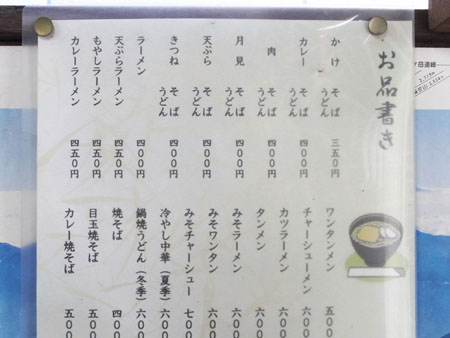 お品書き
かけ そば うどん 三五〇円
カレー そば うどん 四〇〇円
肉 そば うどん 四〇〇円
月見 そば うどん 四〇〇円
天ぷら そば うどん 四〇〇円
きつね そば うどん 四〇〇円
ラーメン 四〇〇円
天ぷらラーメン 四五〇円
もやしラーメン 四五〇円
カレーラーメン 四五〇円
ワンタンメン 五〇〇
チャーシューメン 六〇〇
カツラーメン 六〇〇
タンメン 六〇〇
みそラーメン 六〇〇
みそワンタン 六〇〇
みそチャーシュー 七〇〇
冷やし中華（夏季） 六〇〇
鍋焼うどん（冬季） 六〇〇
焼そば 四〇〇
目玉焼そば 五〇〇
カレー焼そば 五〇〇